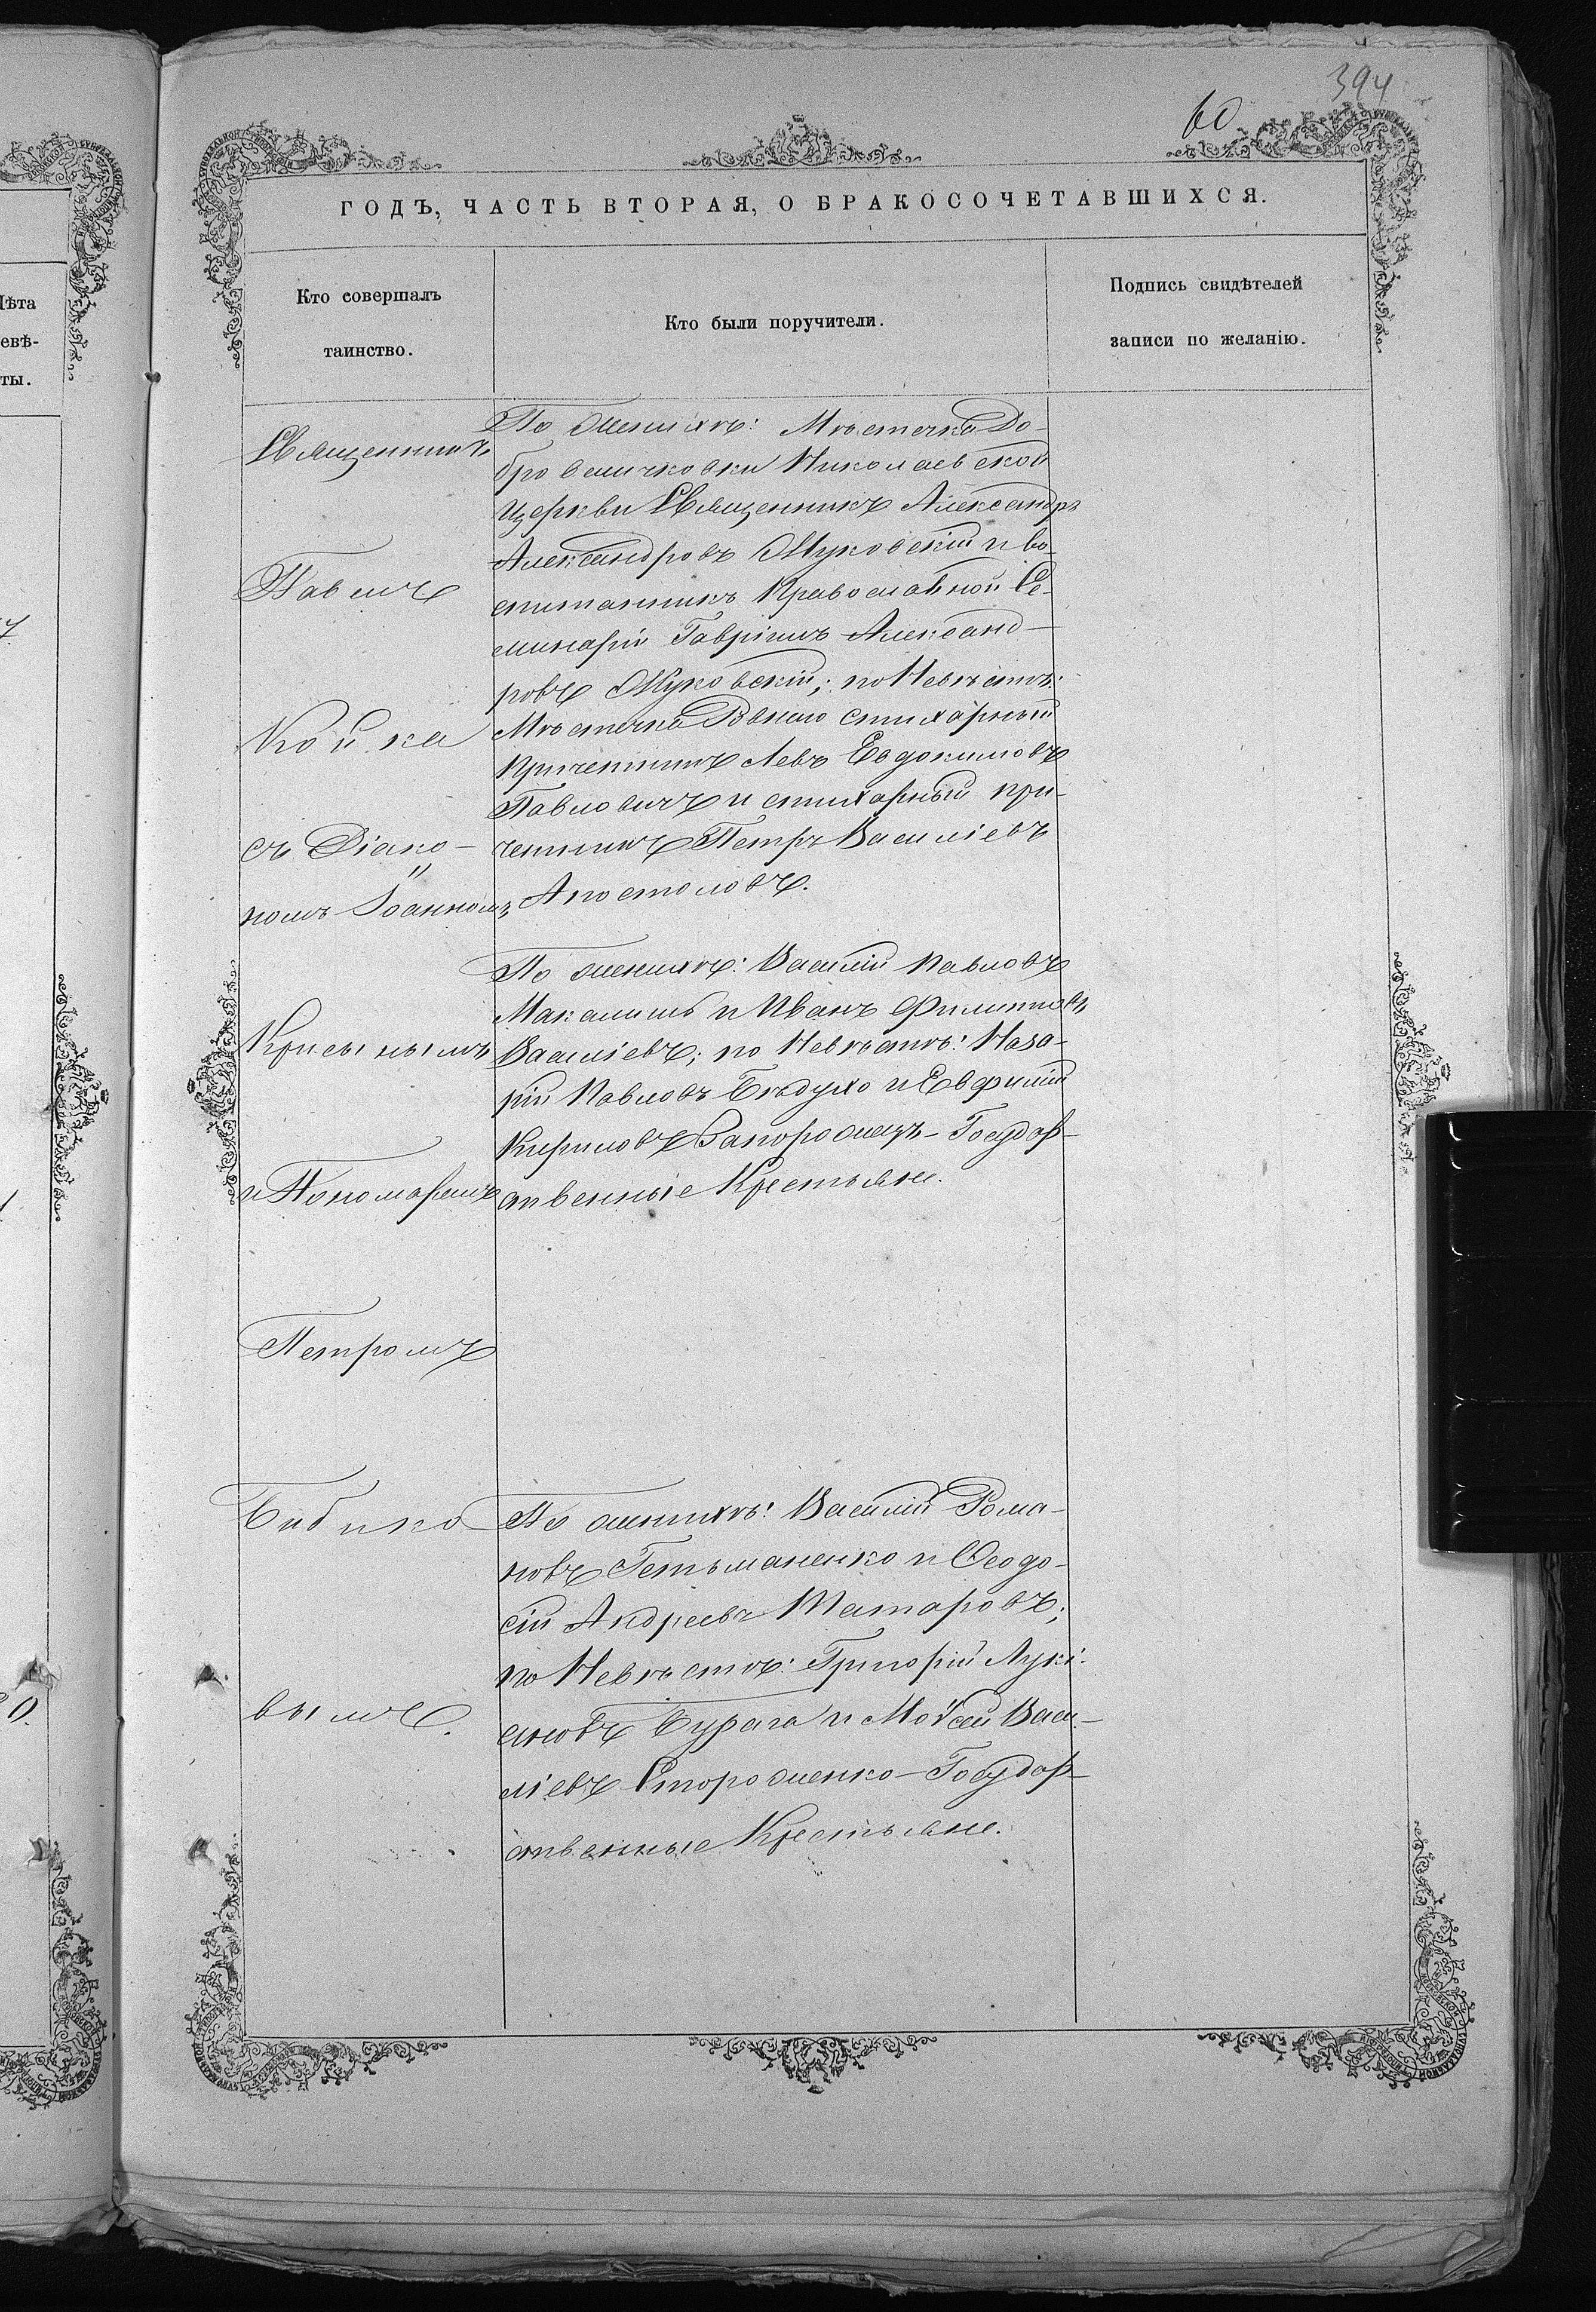 394
60
ГОДЪ, ЧАСТЬ ВТОРАЯ, О БРАКОСОЧЕТАВШИХСЯ.
Лѣта
евѣ-
ты.
Кто совершалъ
таинство.
Кто были поручители.
Подпись свидѣтелей
записи по желанію.
Священникъ
Павелъ
Койка
съ Діако-
номъ Іоанномъ
Крисы нымъ
и Пономаремъ
Петромъ
Бибико
вымъ.
По женихѣ: Мѣстечка До-
бровеличковки Николаевской
церкви Священникъ Александръ
Александровъ Жуковскій и во-
спитанникъ Православной Се-
минаріи Гавріилъ Александ-
ровъ Жуковскій; по Невѣстѣ:
Мѣстечка Ровнаго стихарный
Причетникъ Левъ Евдокимовъ
Павловичъ и стихарный при-
четникъ Петръ Василіевъ
Апостоловъ.
По женихѣ: Василій Павловъ
и Иванъ Филипповъ
Василіевъ; по Невѣстѣ: Наза-
рій Павловъ Бѣдухо и Евфимій
Кириловъ Запорожецъ - Государ-
ственные Крестьяне.
По женихѣ: Василій Рома-
новъ Гетьманенко и Ѳеодо-
сій Андреевъ Татаровъ;
по Невѣстѣ: Григорій Лукі-
яновъ Бурага и Моѵсей Васи-
ліевъ Стороженко - Государ-
ственные Крестьяне.